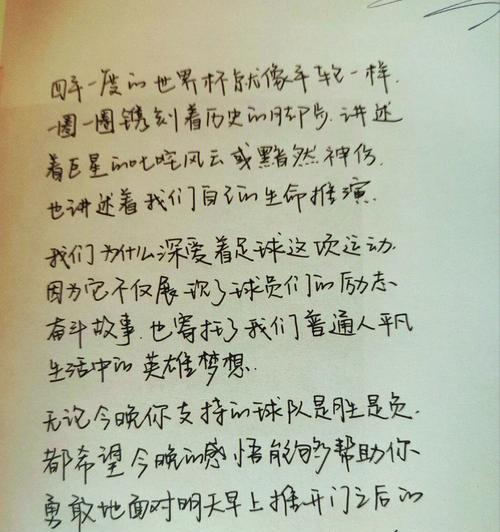 四年一度的世界杯就像年轮一样.
一圈一圈镌刻着历史的脚步.讲述
着巨星的叱咤风云或黯然神伤.
也讲述着我们自己的生命推演.
我们为什么深爱着足球这项运动.
因为它不仅展现了球员们的励志、
奋斗故事.也寄托了我们普通人平凡
生活中的英雄梦想.
无论今晚你支持的球队是胜是负.
都希望今晚的感悟能够帮助你、
勇敢地面对明天早上推开门之后的